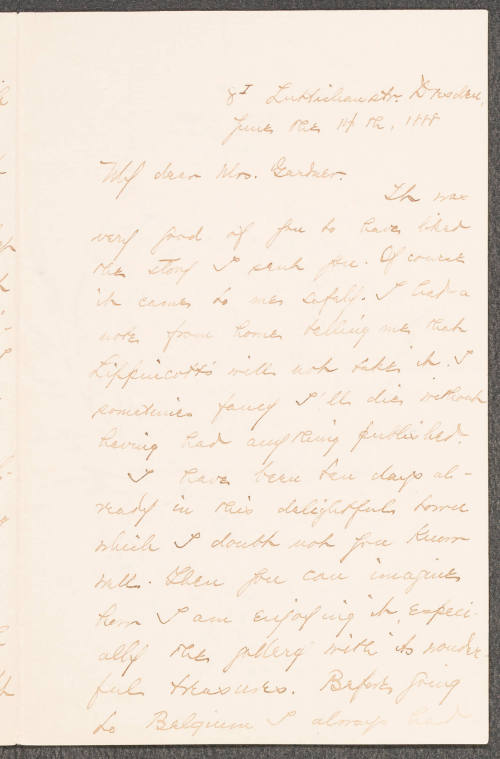 8I Lüttichaustr. Dresden,
June the 14th, 1888
My dear Mrs. Gardner.
It was
very good of you to have liked
the story I sent you. Of course
it came to me safely. I had a
note from home telling me that
Lippincott's will not take it. I
sometimes fancy I'll die without
having had anything published.
I have been ten days al-
ready in this delightful town
which I doubt not you know
well. Then you can imagine
how I am enjoying it, especi-
ally the gallery with its wonder-
ful treasures. Before going
to Belgium I always had